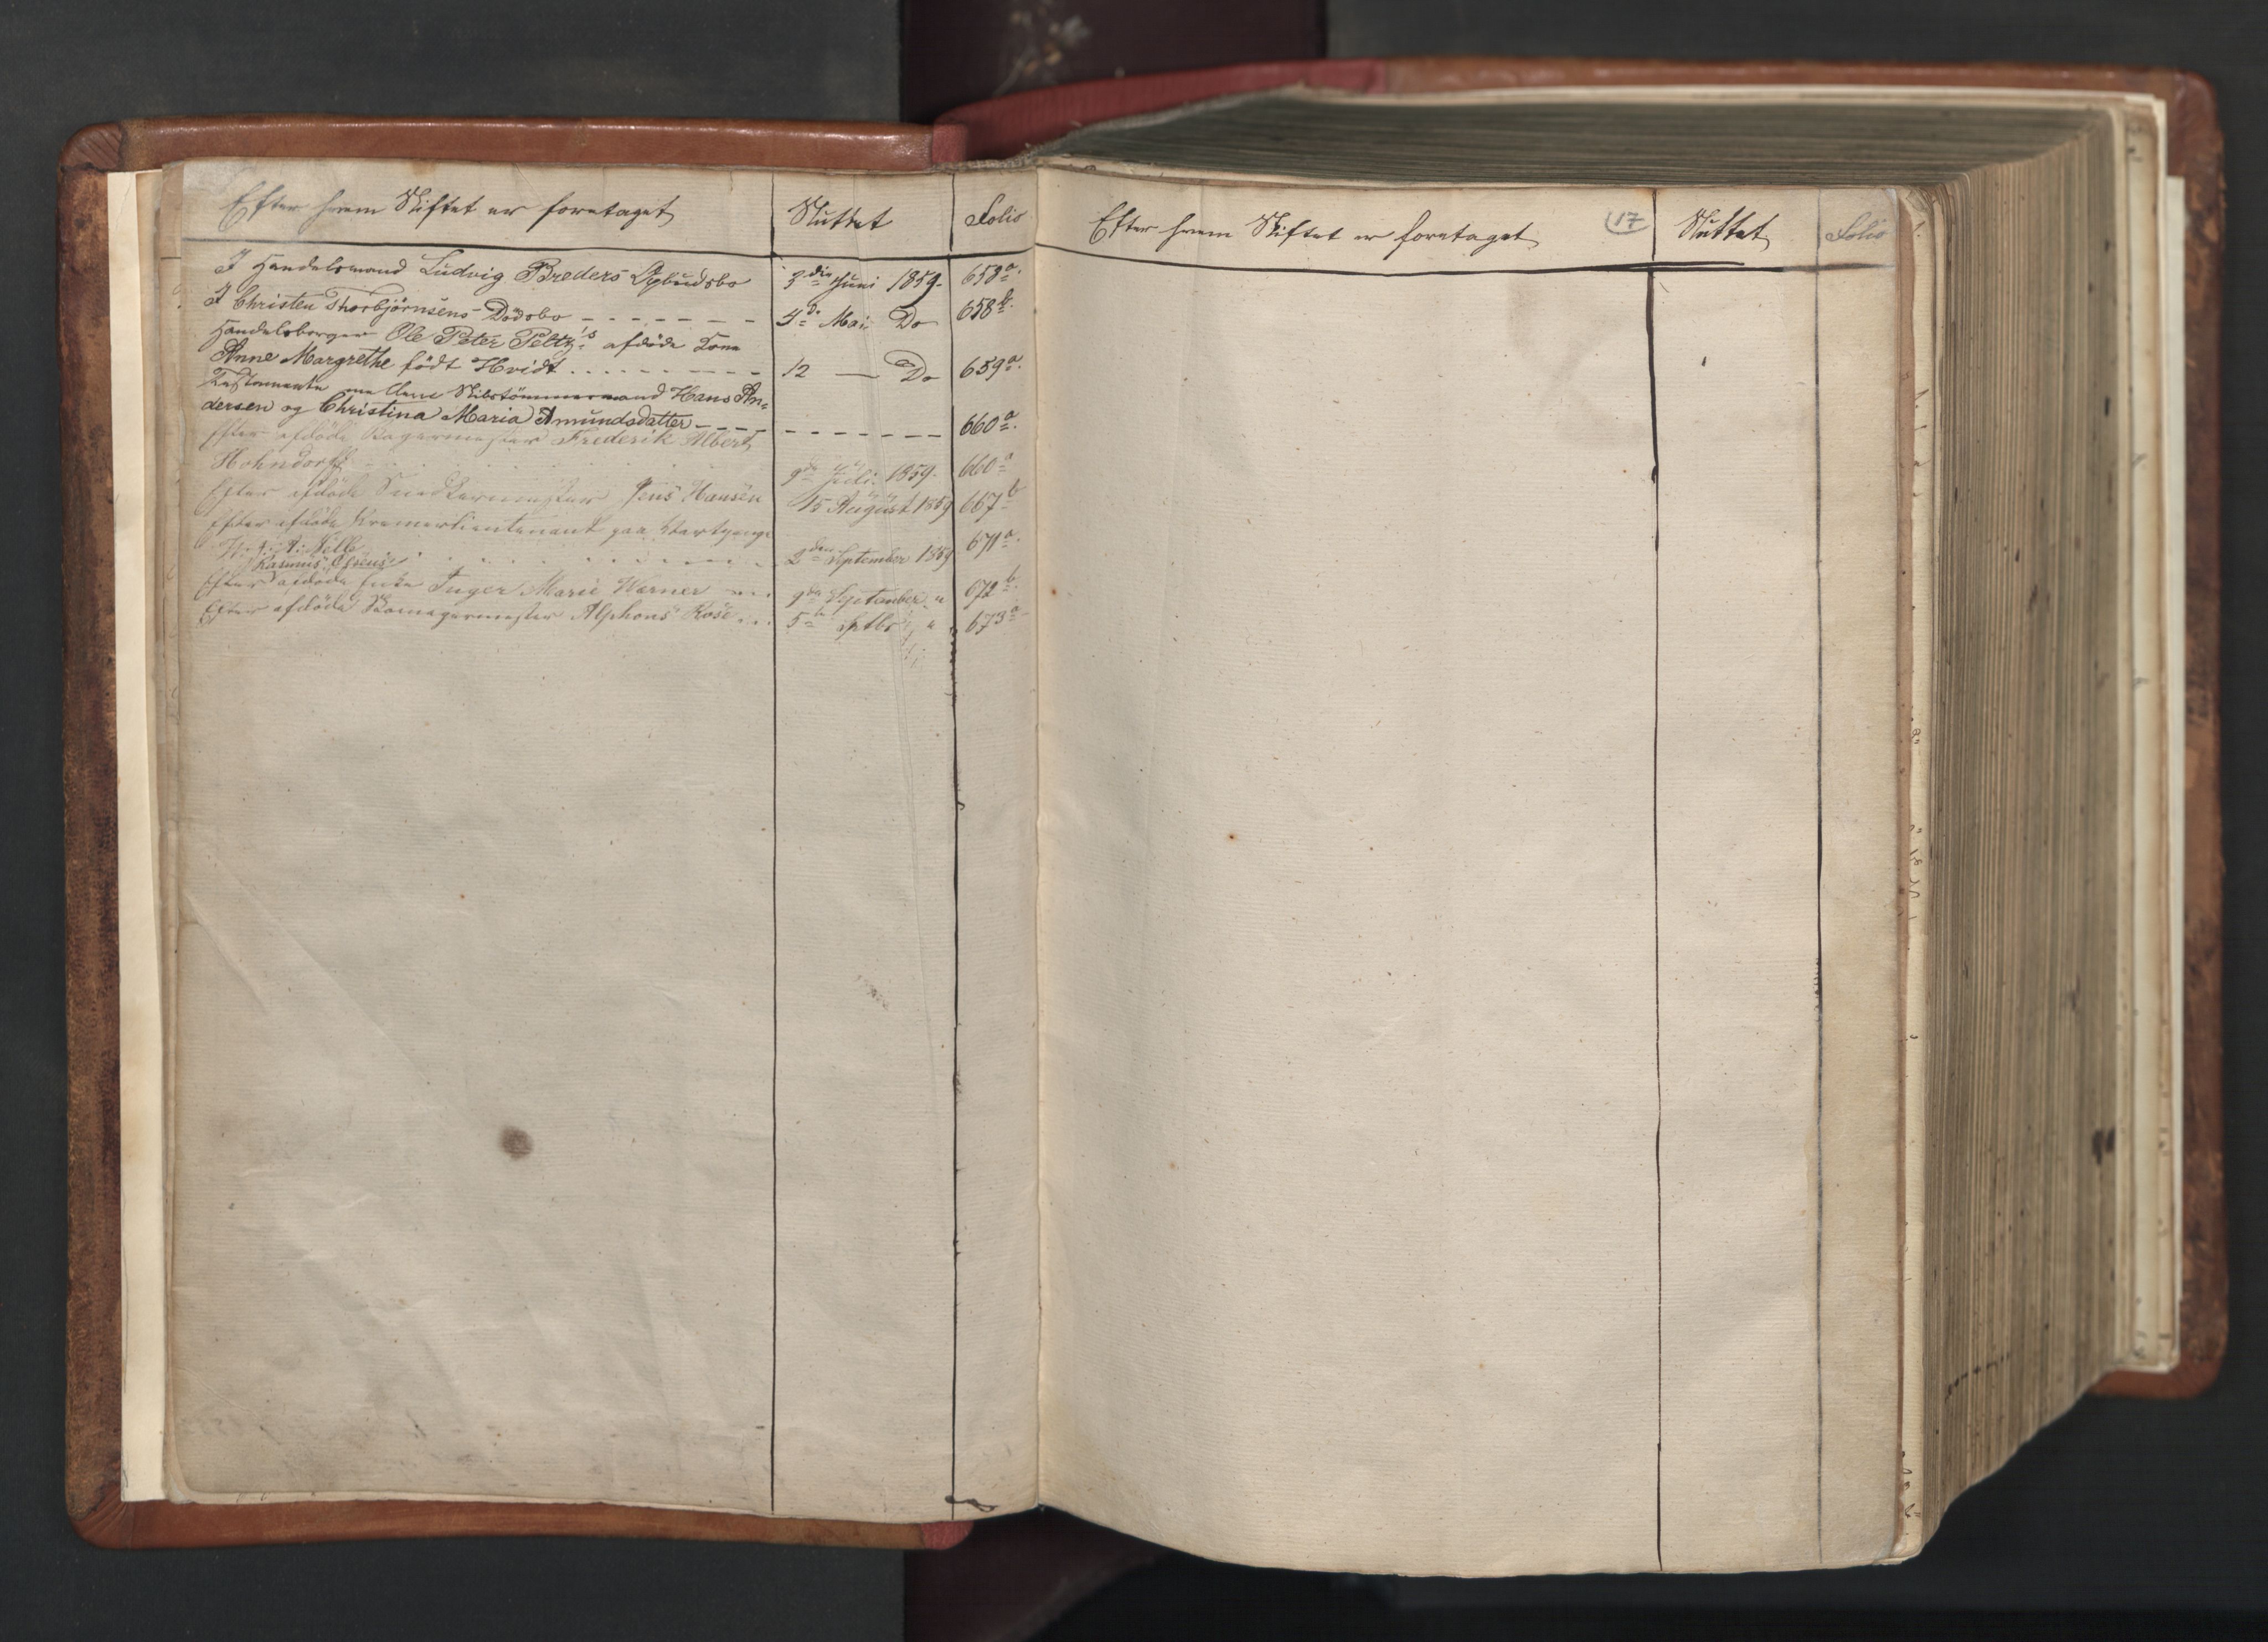 Efter hvem Skiftet er foretaget Sluttet Folio
I Handelsmand Ludvig Breders Opbudsbo 3die Juni 1859. 658a.
I Christen Thorbjørnsens Dødsbo 4de Mai Do 658b.
Handelsborger Ole Peter Peltz's afdøde Kone
Anne Margrethe født Hvidt 12 — Do 659a.
Testamente mellem Skibstømmermand Hans An-
dersen og Christina Maria Amundsdatter 660a.
Efter afdøde Bagermester Frederik Albert
Hohndorff 9de Juli 1859. 660a
Efter afdøde Snedkermester Jens Hansen 15 August 1859 667b
Efter afdøde Premierlieutenant paa Vartpenge
Nelle 2den September 1859 671a.
Rasmus Olsens
Efter afdøde Enke Inger Marie Werner 9de September " 672b.
Efter afdøde Skomagermester Alphons Rose 5te Septbr " 673a
Efter hvem Skiftet er foretaget 17 Sluttet Folio